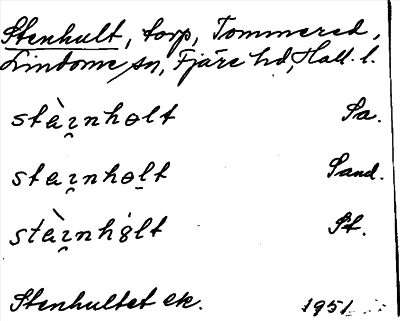 Stenhult, torp, Tommered,
Lindome sn, Fjäre hd, Hall. l.
stàı̯nhɵlt Sa.
staı̯nhɵl̠t Sand.
stàı̯nh8̀lt St.
Stenhultet ek.
1951